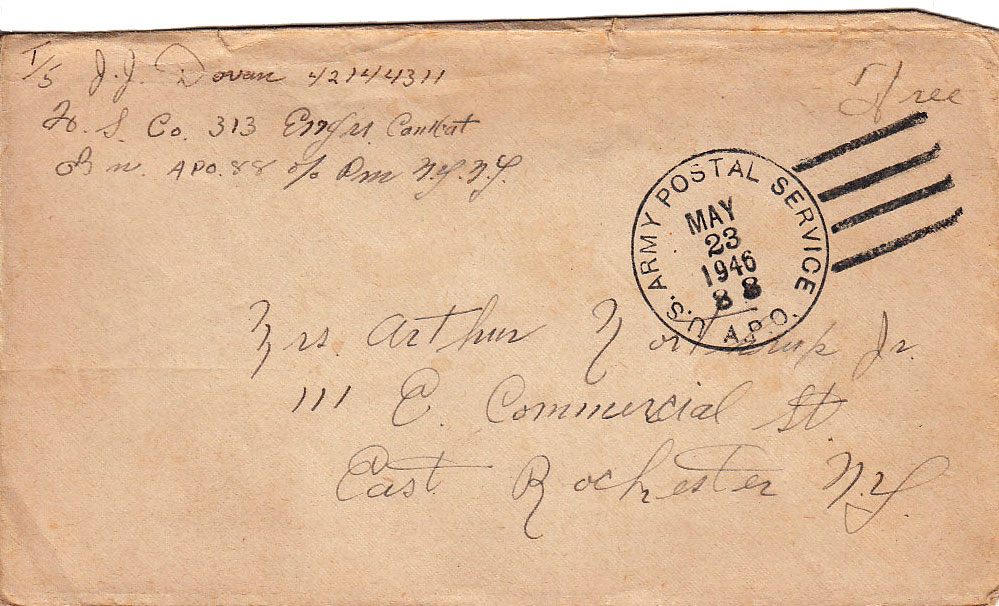 T/5 J.J. Dovan 42144311
H. S. Co. 313 Engrs. Combat
Bn. APO. 88 c/o Pm N.Y. N.Y.
Free
U.S. ARMY POSTAL SERVICE A.P.O.
MAY
23
1946
88
Mrs. Arthur Northrup Jr.
111 E. Commercial St.
East Rochester N.Y.